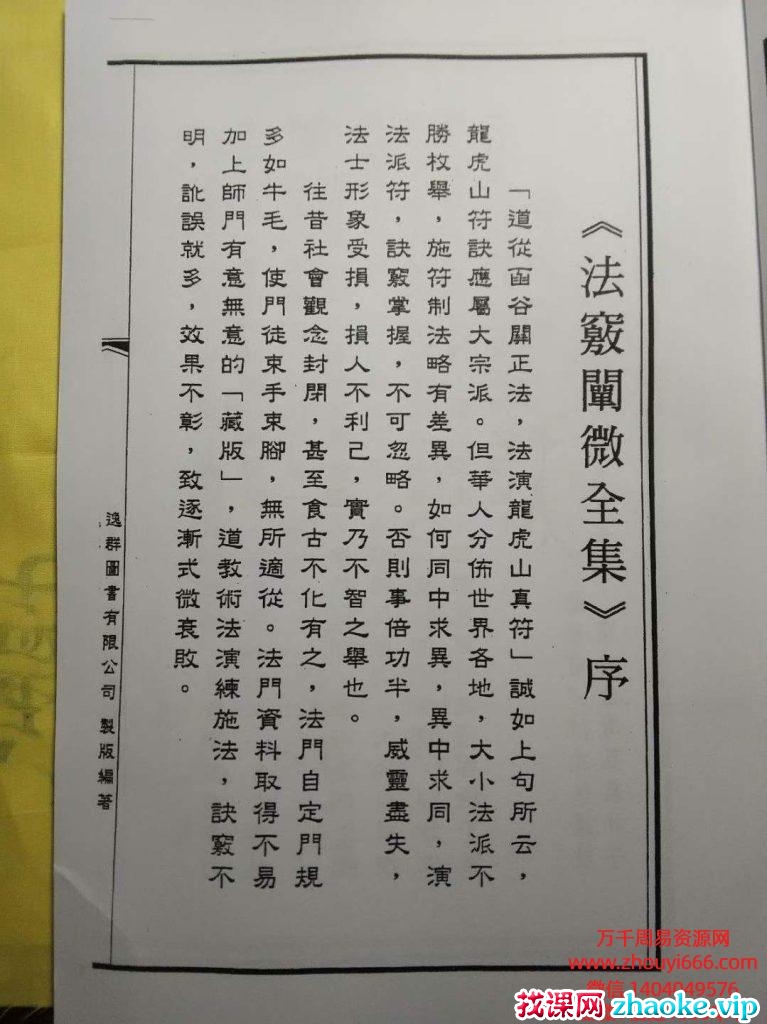 《法竅闡微全集》序
「道從函谷關正法，法演龍虎山真符」誠如上句所云，
龍虎山符訣應屬大宗派。但華人分佈世界各地，大小法派不
勝枚舉，施符制法略有差異，如何同中求異，異中求同，演
法派符，訣竅掌握，不可忽略。否則事倍功半，威靈盡失，
法士形象受損，損人不利己，實乃不智之舉也。
往昔社會觀念封閉，甚至食古不化有之，法門自定門規
多如牛毛，使門徒束手束腳，無所適從。法門資料取得不易
加上師門有意無意的「藏版」，道教術法演練施法，訣竅不
明，訛誤就多，效果不彰，致逐漸式微衰敗。
逸群圖書有限公司 製版編著
万千周易资源网
www.zhouyi666.com
微信 1404049576
找课网zhaoke.vip